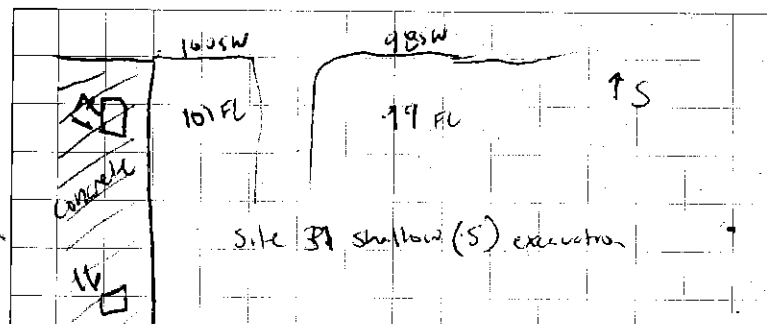 100SW 98SW
↑ S
101 FL 99 FL
concrete
Site 31 shallow (.5) excavation